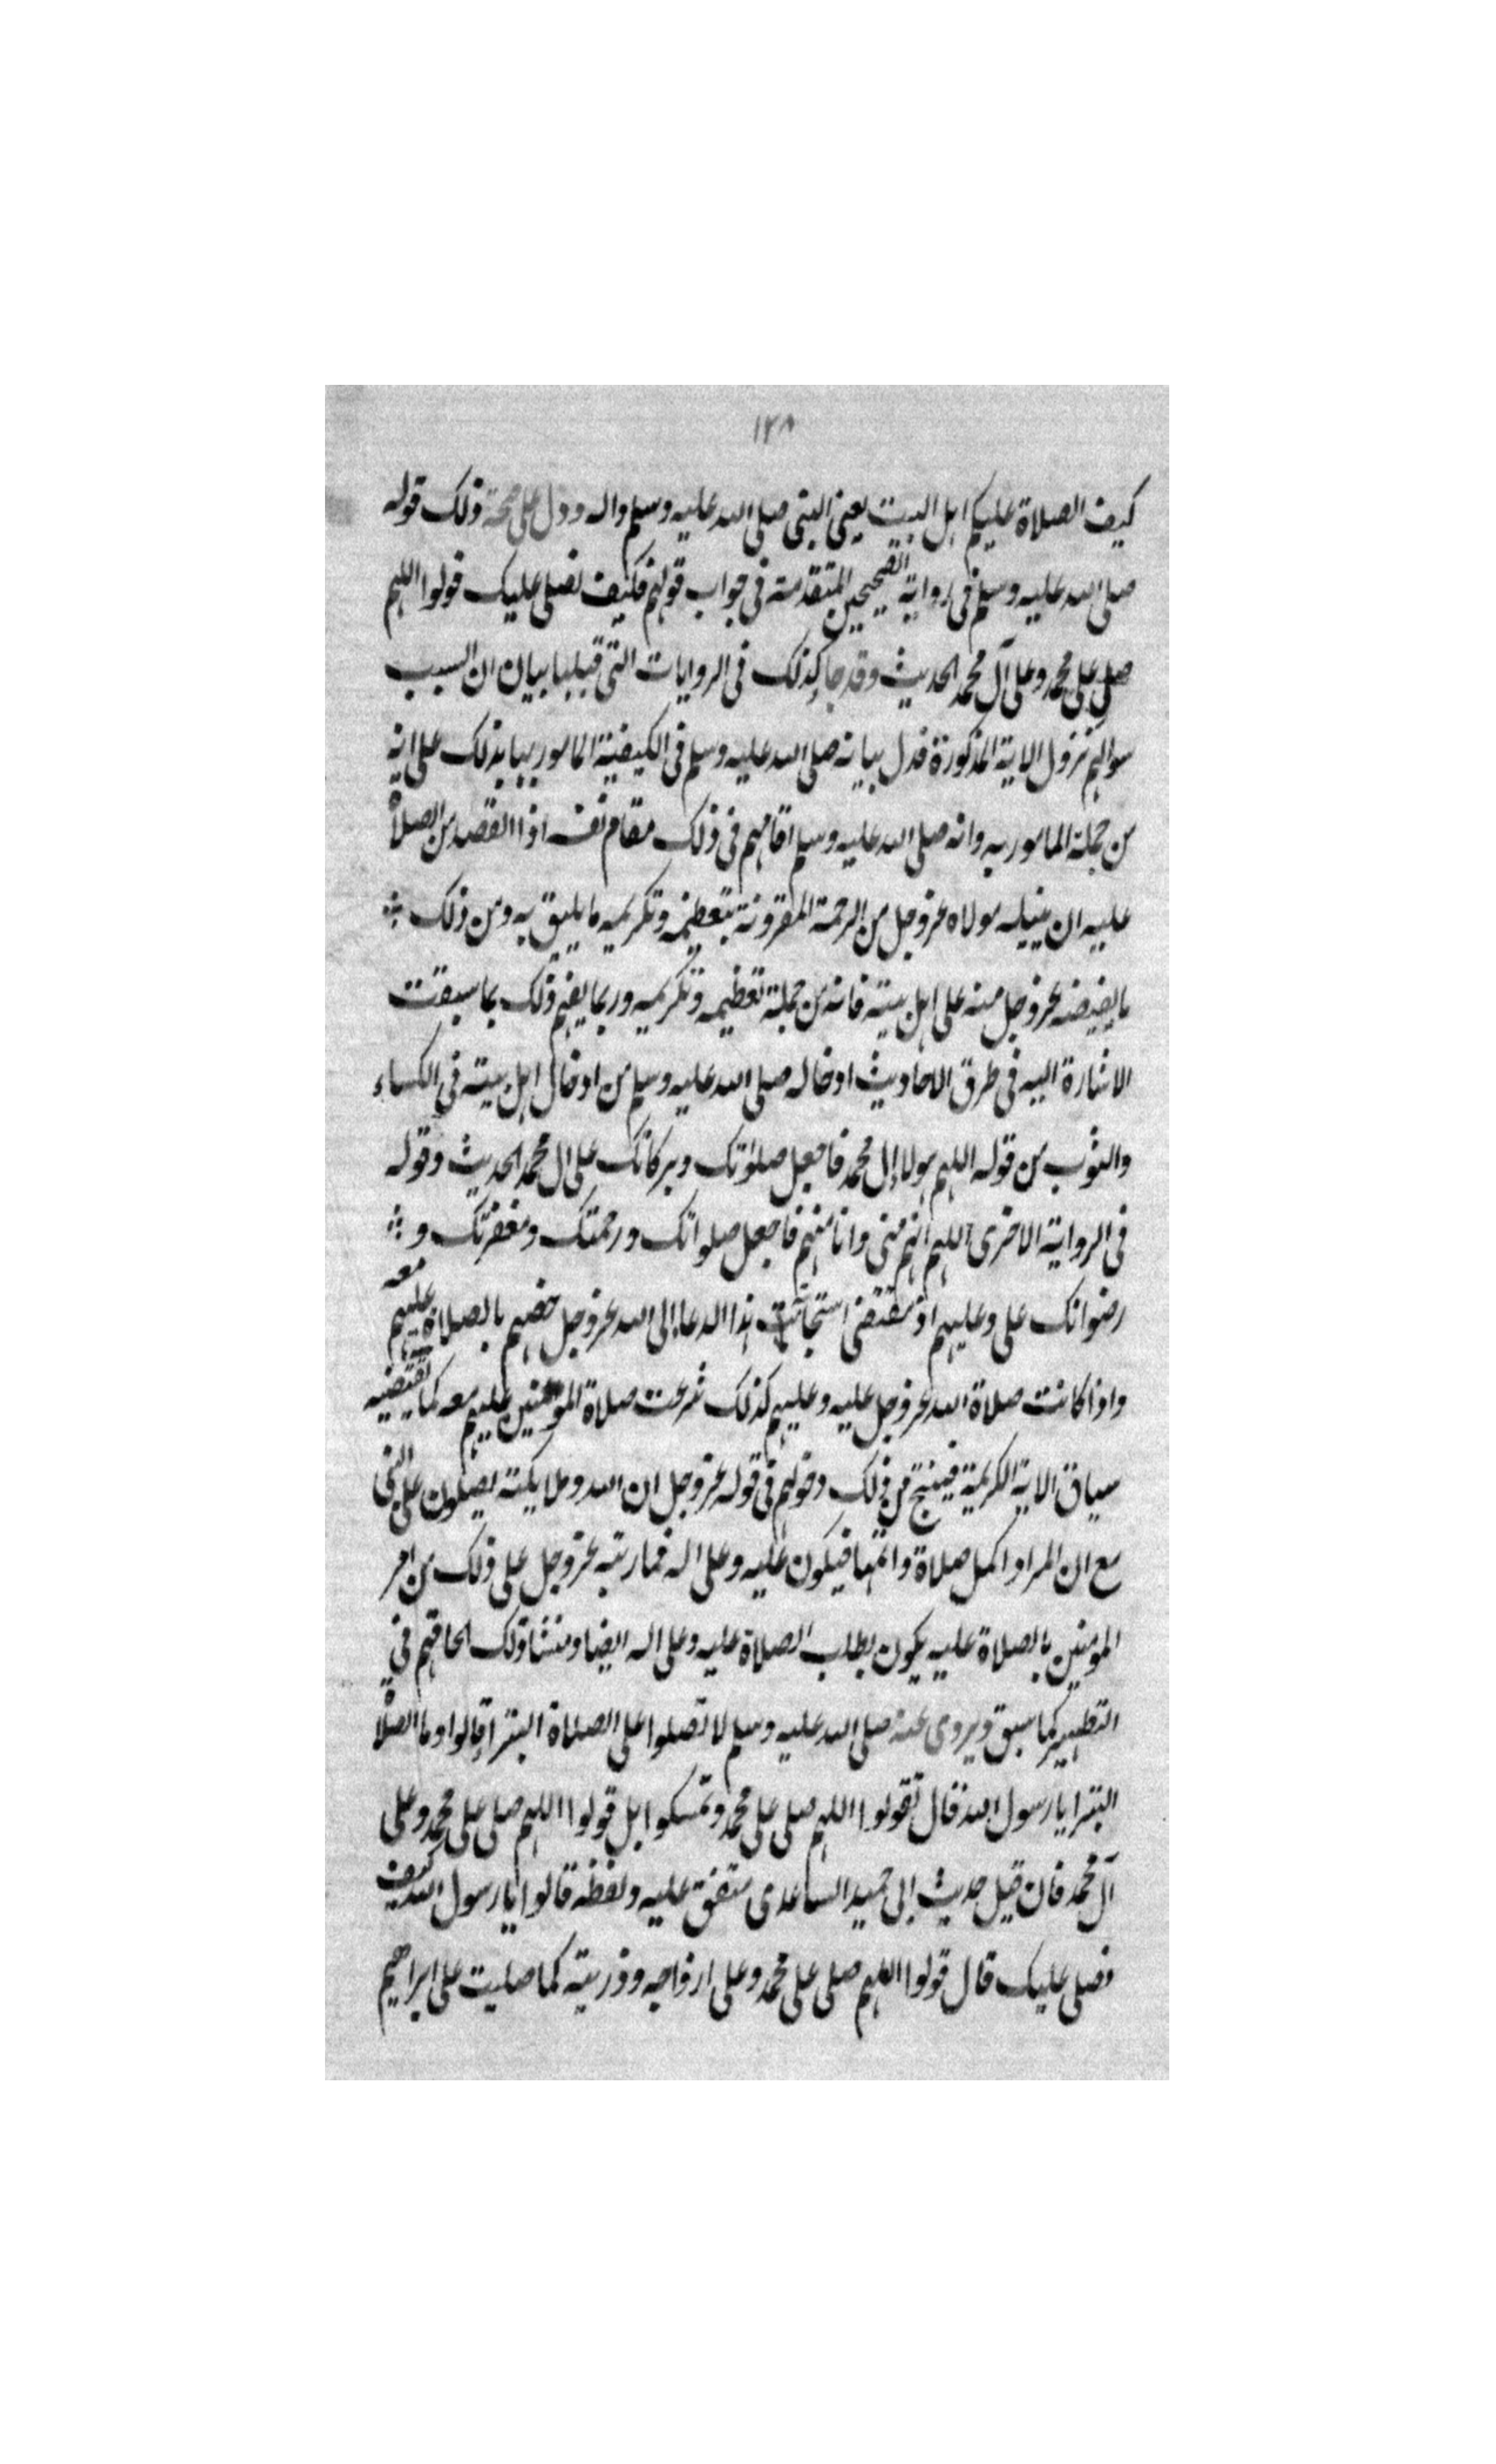 ١٢٨
كيف الصلاة عليكم اهل البيت يعنى النبى صلى الله عليه وسلم واله ودل على صحة ذلك قوله
صلى الله عليه وسلم فى رواية الصحيحين المتقدمة فى جواب قولهم فكيف نصلى عليك قولوا اللهم
صلى على محمد وعلى آل محمد الحديث وقد جا كذلك فى الروايات التى قبلها بيان ان السبب
سوالهم نزول الاية المذكورة فدل بيانه صلى الله عليه وسلم فى الكيفية المامور بها بذلك على انه
من جملة المامور به وانه صلى الله عليه وسلم اقامهم فى ذلك مقام نفسه اذا القصد من الصلاة
عليه ان ينيله مولاه عزوجل من الرحمة المقرونة بتعظيمه وتكريمه ما يليق به ومن ذلك
ما يفيضه عزوجل منه على اهل بيته فانه من جملة تعظيمه وتكريمه وربما يفهم ذلك بما سبقت
الاشارة اليه فى طرق الاحاديث ادخاله صلى الله عليه وسلم من ادخال اهل بيته فى الكساء
والثوب من قوله اللهم هولا إل محمد فاجعل صلوٰتك وبركاتك على ال محمد الحديث وقوله
فى الرواية الاخرى اللهم انهم منى وانا منهم فاجعل صلواتك ورحمتك ومغفرتك و
رضوانك على وعليهم اذ مقتضى استجابة هذا الدعا إلى الله عزوجل خصهم بالصلاة عليهم معه
واذا كانت صلاة الله عزوجل عليه وعليهم كذلك شرعت صلاة المؤمنين عليهم معه كما يقتضيه
سياق الاية الكريمة فينتج من ذلك وقولهم فى قوله عزوجل ان الله وملايكته يصلون على النبى
مع ان المراد اكمل صلاة واتمها فيكون عليه وعلى اله فما رتبه عزوجل على ذلك من امر
المومنين بالصلاة عليه يكون بطلب الصلاة عليه وعلى اله ايضا ومنشا ذلك الحاقهم فى
التطهير كما سبق ويروى عنه صلى الله عليه وسلم لا تصلوا على الصلاة البترا قالوا وما الصلاة
البترا يا رسول الله قال تقولوا اللهم صلى على محمد وتمسكوا بل قولوا اللهم صلى على محمد وعلى
آل محمد فان قيل حديث ابى حميد الساعدى متفق عليه ولفظه قالوا يا رسول الله كيف
نصلى عليك قال قولوا اللهم صلى على محمد وعلى ازواجه وذريته كما صليت على ابراهيم